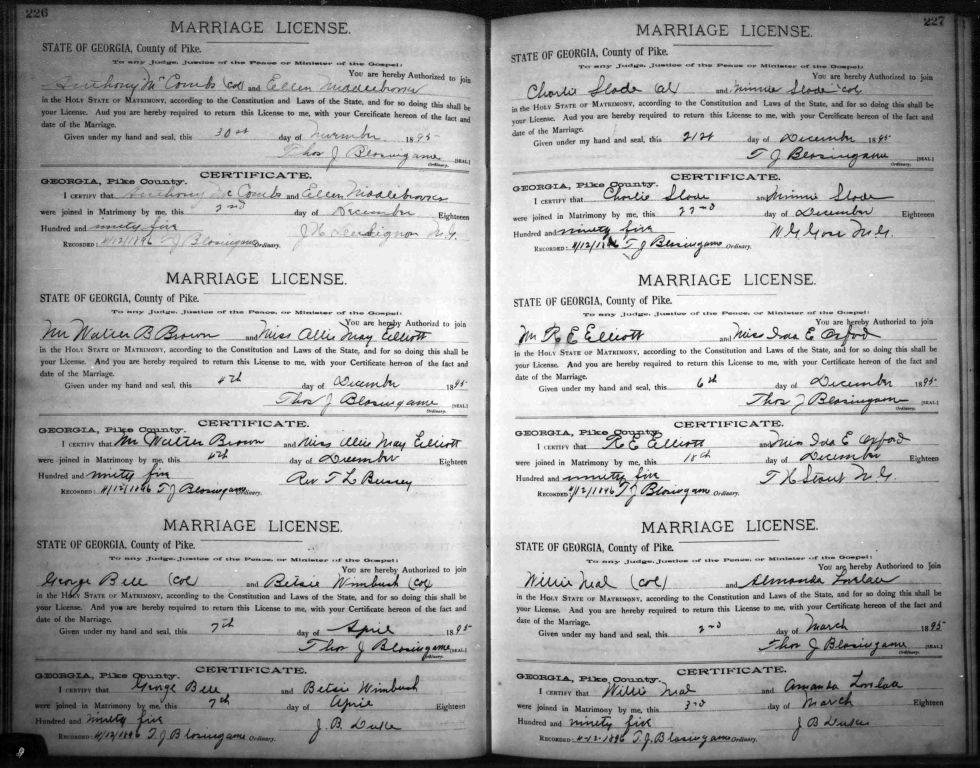 226
MARRIAGE LICENSE.
STATE OF GEORGIA, County of Pike.
To any Judge, Justice of the Peace or Minister of the Gospel:
You are hereby Authorized to join
Anthony McCombs (col) and Ellen Middlebrooks
in the HOLY STATE OF MATRIMONY, according to the Constitution and Laws of the State, and for so doing this shall be
your License. And you are hereby required to return this License to me, with your Certificate hereon of the fact and
date of the Marriage.
Given under my hand and seal, this 30th day of November 1895
Thos J Blasingame [SEAL]
Ordinary.
CERTIFICATE.
GEORGIA, Pike County.
I CERTIFY that Anthony McCombs and Ellen Middlebrooks
were joined in Matrimony by me, this 2nd day of December Eighteen
Hundred and ninety five J H M.G.
RECORDED: 4/12/1896 T J Blasingame Ordinary.
MARRIAGE LICENSE.
STATE OF GEORGIA, County of Pike.
To any Judge, Justice of the Peace, or Minister of the Gospel:
You are hereby Authorized to join
Mr Walter B Brown and Miss Allie May Elliott
in the HOLY STATE OF MATRIMONY, according to the Constitution and Laws of the State, and for so doing this shall be
your License. And you are hereby required to return this License to me, with your Certificate hereon of the fact and
date of the Marriage.
Given under my hand and seal, this 4th day of December 1895
Thos J Blasingame [SEAL]
Ordinary.
CERTIFICATE.
GEORGIA, Pike County.
I CERTIFY that Mr Walter Brown and Miss Allie May Elliott
were joined in Matrimony by me, this day of December Eighteen
Hundred and ninety five Rev T L Bussey
RECORDED: 4/12/1896 T J Blasingame Ordinary.
MARRIAGE LICENSE.
STATE OF GEORGIA, County of Pike.
To any Judge, Justice of the Peace, or Minister of the Gospel:
You are hereby Authorized to join
George Bell (Col) and Betsie Wimbush (Col)
in the HOLY STATE OF MATRIMONY, according to the Constitution and Laws of the State, and for so doing this shall be
your License. And you are hereby required to return this License to me, with your Certificate hereon of the fact and
date of the Marriage.
Given under my hand and seal, this 7th day of April 1895
Thos J Blasingame [SEAL]
Ordinary.
CERTIFICATE.
GEORGIA, Pike County.
I CERTIFY that George Bell and Betsie Wimbush
were joined in Matrimony by me, this 7th day of April Eighteen
Hundred and ninety five J. B. Duke
RECORDED: 4/12/1896 T. J Blasingame Ordinary.
227
MARRIAGE LICENSE.
STATE OF GEORGIA, County of Pike.
To any Judge, Justice of the Peace or Minister of the Gospel:
You are hereby Authorized to join
Charlie Slade Col and Minnie Slade col
in the HOLY STATE OF MATRIMONY, according to the Constitution and Laws of the State, and for so doing this shall be
your License. And you are hereby required to return this License to me, with your Certificate hereon of the fact and
date of the Marriage.
Given under my hand and seal, this 21st day of December 1895
T J Blasingame [SEAL]
Ordinary.
CERTIFICATE.
GEORGIA, Pike County.
I CERTIFY that Charlie Slade and Minnie Slade
were joined in Matrimony by me, this 22nd day of December Eighteen
Hundred and ninety five W G M.G.
RECORDED: 4/12/1896 T J Blasingame Ordinary.
MARRIAGE LICENSE.
STATE OF GEORGIA, County of Pike.
To any Judge, Justice of the Peace, or Minister of the Gospel:
You are hereby Authorized to join
Mr R E Elliott and Miss Ida E Oxford
in the HOLY STATE OF MATRIMONY, according to the Constitution and Laws of the State, and for so doing this shall be
your License. And you are hereby required to return this License to me, with your Certificate hereon of the fact and
date of the Marriage.
Given under my hand and seal, this 6th day of December 1895
Thos J Blasingame [SEAL]
Ordinary.
CERTIFICATE.
GEORGIA, Pike County.
I CERTIFY that R E Elliott and Miss Ida E Oxford
were joined in Matrimony by me, this 18th day of December Eighteen
Hundred and ninety five T H Stout M.G.
RECORDED: 4/12/1896 T J Blasingame Ordinary.
MARRIAGE LICENSE.
STATE OF GEORGIA, County of Pike.
To any Judge, Justice of the Peace, or Minister of the Gospel:
You are hereby Authorized to join
Willie Neal (Col) and Almanda Lovelace
in the HOLY STATE OF MATRIMONY, according to the Constitution and Laws of the State, and for so doing this shall be
your License. And you are hereby required to return this License to me, with your Certificate hereon of the fact and
date of the Marriage.
Given under my hand and seal, this 2nd day of March 1895
Thos J Blasingame [SEAL]
Ordinary.
CERTIFICATE.
GEORGIA, Pike County.
I CERTIFY that Willie Neal and Amanda Lovelace
were joined in Matrimony by me, this 3rd day of March Eighteen
Hundred and ninety five J B Duke
RECORDED: 4-12-1896 T. J. Blasingame Ordinary.